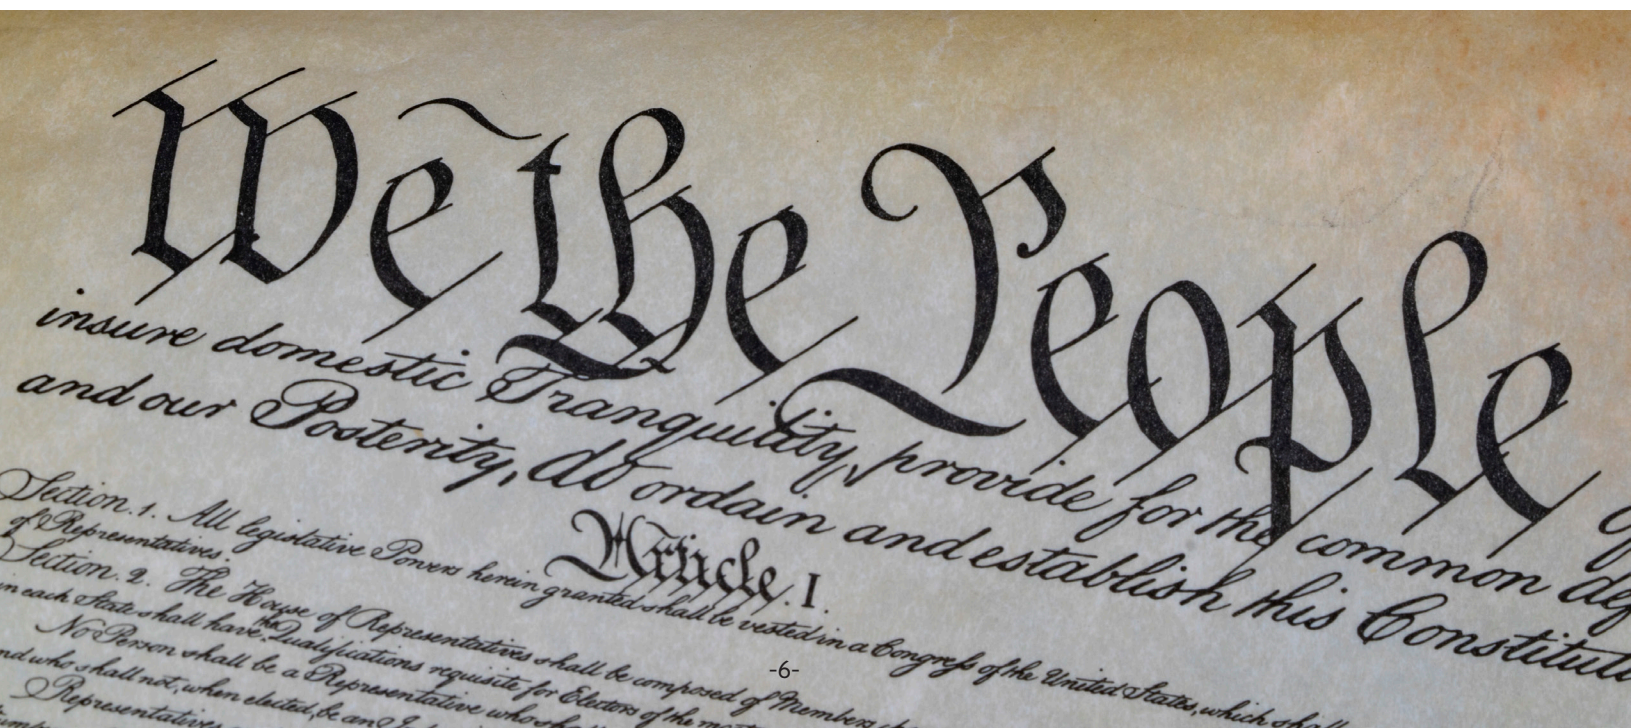 We the People
insure domestic Tranquility, provide for the common def
and our Posterity, do ordain and establish this Constituti
Article. I.
Section. 1. All legislative Powers herein granted shall be vested in a Congress of the United States, which shall
of Representatives.
Section. 2. The House of Representatives shall be composed of Members
in each State shall have the Qualifications requisite for Electors of the most
No Person shall be a Representative who shall
nd who shall not, when elected, be an I
Representatives
-6-